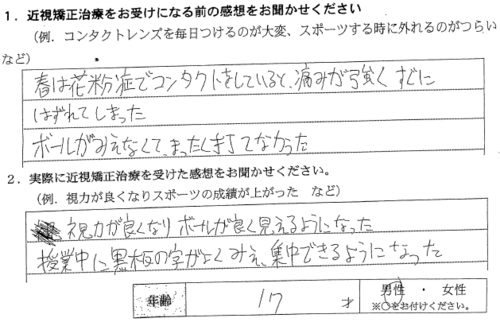 1．近視矯正治療をお受けになる前の感想をお聞かせください
（例．コンタクトレンズを毎日つけるのが大変、スポーツする時に外れるのがつらい
など）
春は花粉症でコンタクトをしていると、痛みが強くすぐに
はずれてしまった
ボールがみえなくて、まったく打てなかった
2．実際に近視矯正治療を受けた感想をお聞かせください。
（例．視力が良くなりスポーツの成績が上がった など）
視力が良くなり ボールが良く見えるようになった
授業中に黒板の字がよくみえ、集中できるようになった
年齢 17 才 男性 ・ 女性
※○をお付けください。